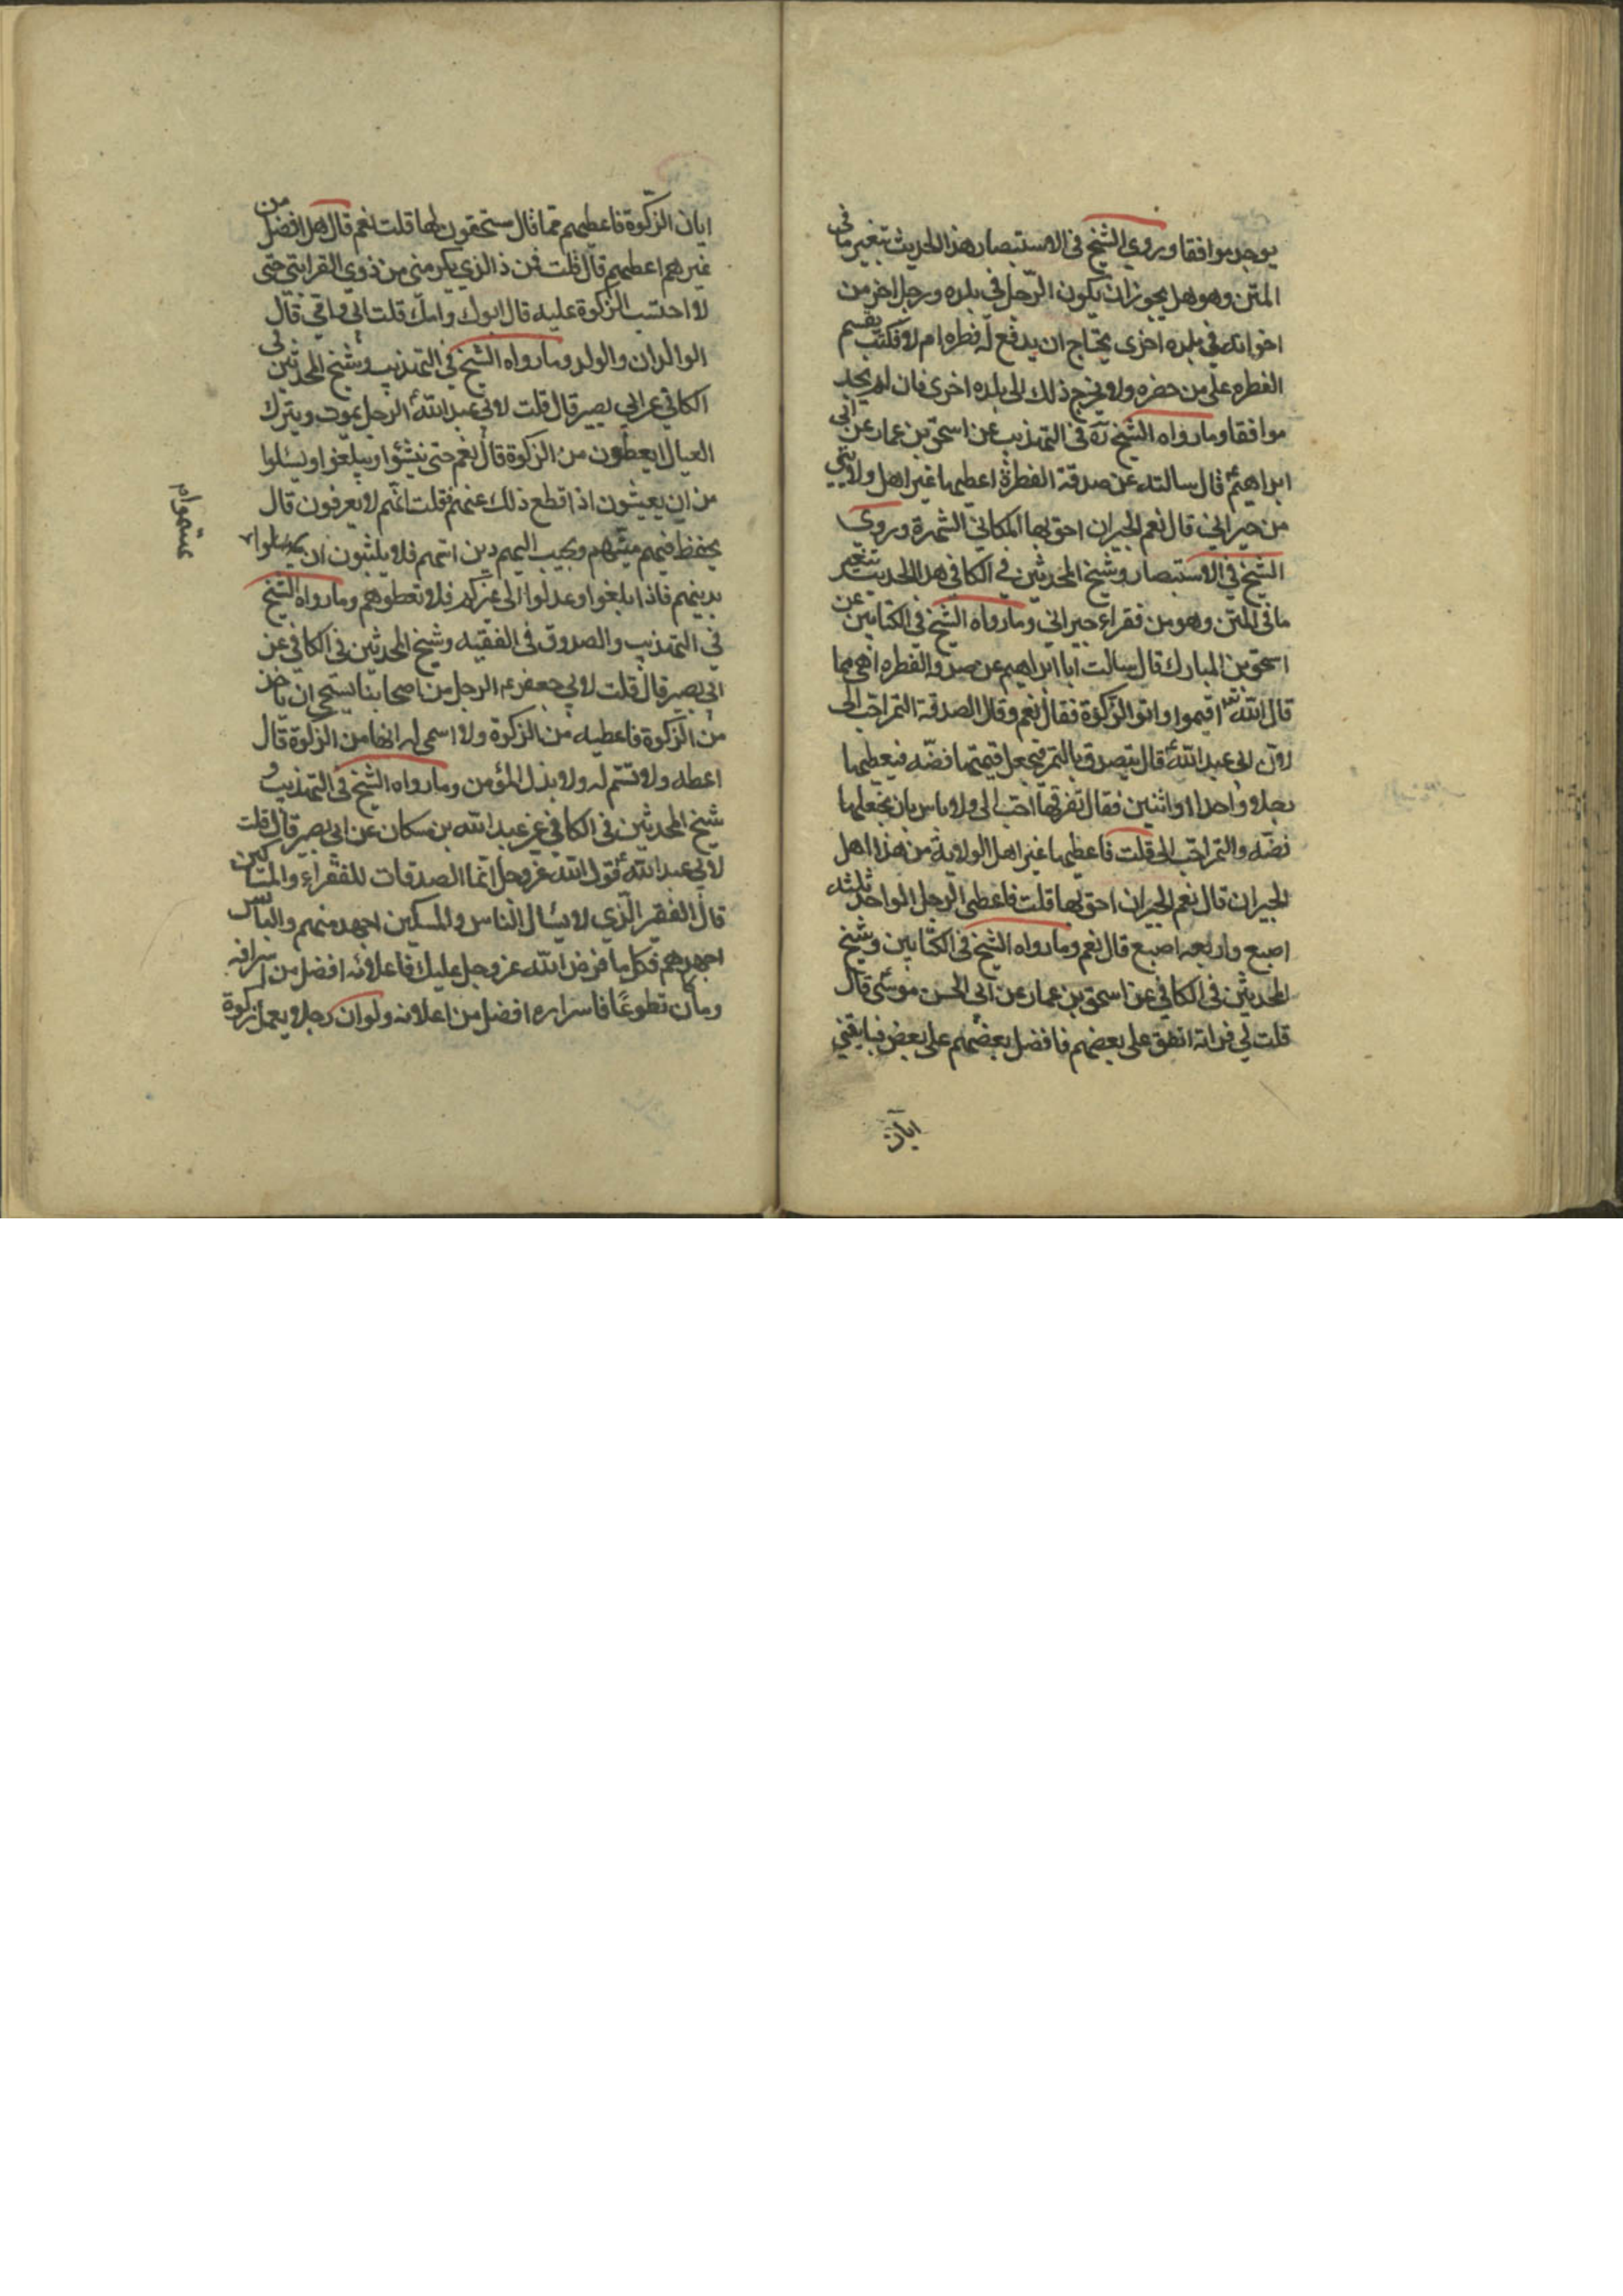 يوجد موافقا ويروي الشيخ في الاستبصار هذا الحديث بتغير ما في
المتن وهو هل يجوز ان يكون الرجل في بلده ورجل اخر من
اخوانه في بلده اخرى يحتاج ان يدفع له فطره ام لا فكتب يقسم
الفطره على من حضره ولا يخرج ذلك الى بلده اخرى فان لم يجد
موافقا وما رواه الشيخ ره في التهذيب عن اسحق بن عمار عن ابي
ابراهيم قال سالته عن صدقة الفطرة اعطيها غير اهل ولايتي
من جيراني قال نعم الجيران احق بها لمكان الشهرة وروي
الشيخ في الاستبصار وشيخ المحدثين في الكافي هذا الحديث بتغير
ما في المتن وهو من فقراء جيراني وما رواه الشيخ في الكتابين عن
اسحق بن المبارك قال سالت ابا ابراهيم عن صدقه الفطره اهي مما
قال الله تعالى اقيموا واتو الزكوة فقال نعم وقال الصدقة التمر احب الي
لان ابي عبد الله قال يتصدق بالتمر فيجعل قيمتها فضه فيعطيها
رجلا واحدا او اثنين فقال تفرقها احب الي ولا باس بان يجعلها
فضه والتمر احب الي قلت فاعطيها غير اهل الولاية من هذا اهل
الجيران قال نعم الجيران احق بها قلت فاعطي الرجل الواحد ثلثه
اصبع واربعه اصبع قال نعم وما رواه الشيخ في الكتابين وشيخ
المحدثين في الكافي عن اسحق بن عمار عن ابي الحسن موسى قال
قلت لي قرابة انفق على بعضهم فافضل بعضهم على بعض فياتيني
ابان
ابان الزكوة فاعطيهم قما قال مستحقون لها قلت نعم قال هل افضل من
غيرهم اعطيهم قال قلت فمن ذا الذي يلزمني من ذوي القرابتي حتى
لا احتسب الزكوة عليه قال ابوك وامك قلت ابي وامي قال
الوالدان والولد وما رواه الشيخ في التهذيب وشيخ المحدثين في
الكافي عن ابي بصير قال قلت لابي عبد الله الرجل يموت ويترك
العيال ايعطون من الزكوة قال نعم حتى ينشؤا ويبلغوا ويسئلوا
من اين يعيشون اذا قطع ذلك عنهم فقلت انهم لا يعرفون قال
يحفظ فيهم ميتهم ويحبب اليهم دين ابيهم فلا يلبثون ان
بدينهم فاذا بلغوا وعدلوا الى غيركم فلا تعطوهم وما رواه الشيخ
في التهذيب والصدوق في الفقيه وشيخ المحدثين في الكافي عن
ابي بصير قال قلت لابي جعفر ع الرجل من اصحابنا يستحي ان ياخذ
من الزكوة فاعطيه من الزكوة ولا اسمي له انها من الزكوة قال
اعطه ولا تسم له ولا بذل المؤمن وما رواه الشيخ في التهذيب و
شيخ المحدثين في الكافي عن عبد الله بن مسكان عن ابي بصير قال قلت
لابي عبد الله قول الله عز وجل انما الصدقات للفقراء والمساكين
قال الفقير الذي لا يسئال الناس والمسكين اجهد منهم والبائس
اجهدهم فكل ما فرض الله عز وجل عليك فاعلانه افضل من اسراره
وما كان تطوعا فاسراره افضل من اعلانه ولو ان رجلا يعمل زكوة